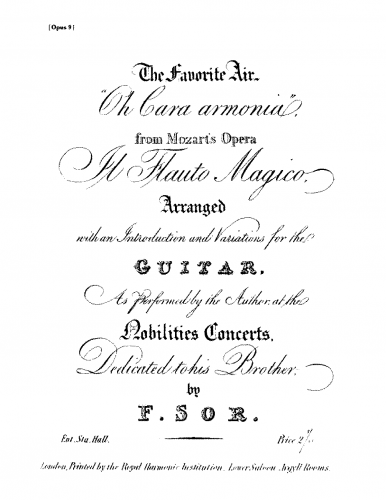 [Opus 9]
The Favorite Air
"Oh Cara armonia",
from Mozart's Opera
Il Flauto Magico.
Arranged
with an Introduction and Variations for the
GUITAR.
As Performed by the Author, at the
Nobilities Concerts.
Dedicated to his Brother,
by
F. SOR.
Ent. Sta. Hall. Price 2/.
London, Printed by the Royal Harmonic Institution, Lower Saloon, Argyll Rooms.